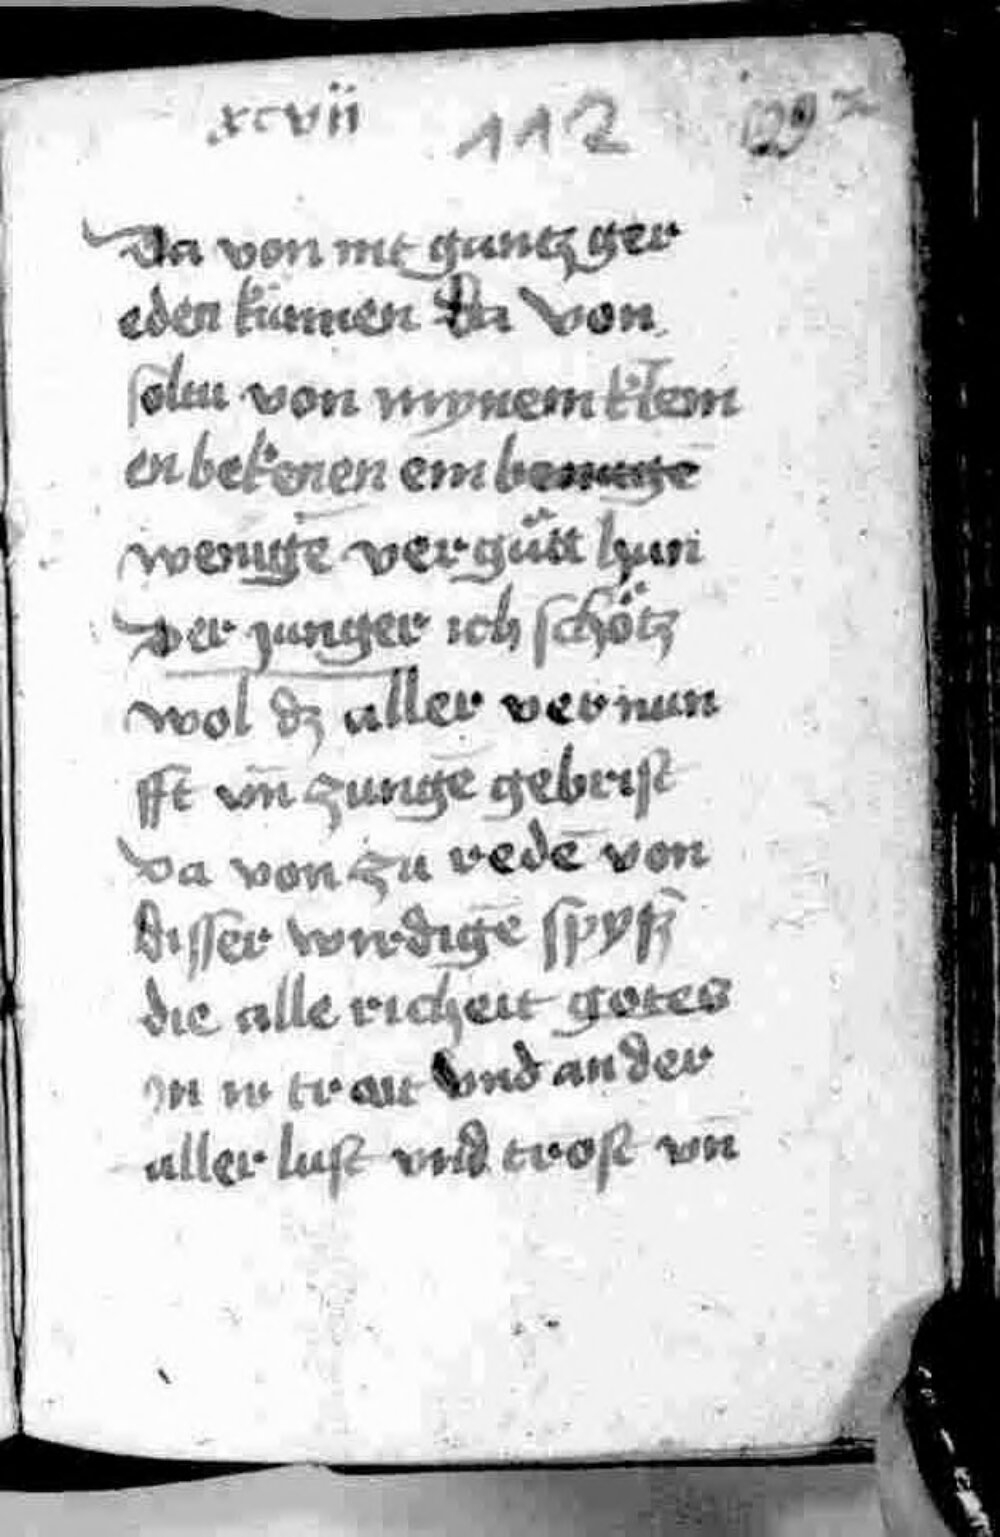 xcvii 112 129
Da von nit gantz ger
eden künnen Da von
soltu von mynem kleīn
en bekenen ein
wenige ver gutt han
Der junger ich schötz
wol dz aller vernun
fft vn̄ zungē gebrist
Da von zu redē von
disser wirdigē spyß
die alle richeit gotes
in ir trait vnd an der
aller lust vnd trost vn̄